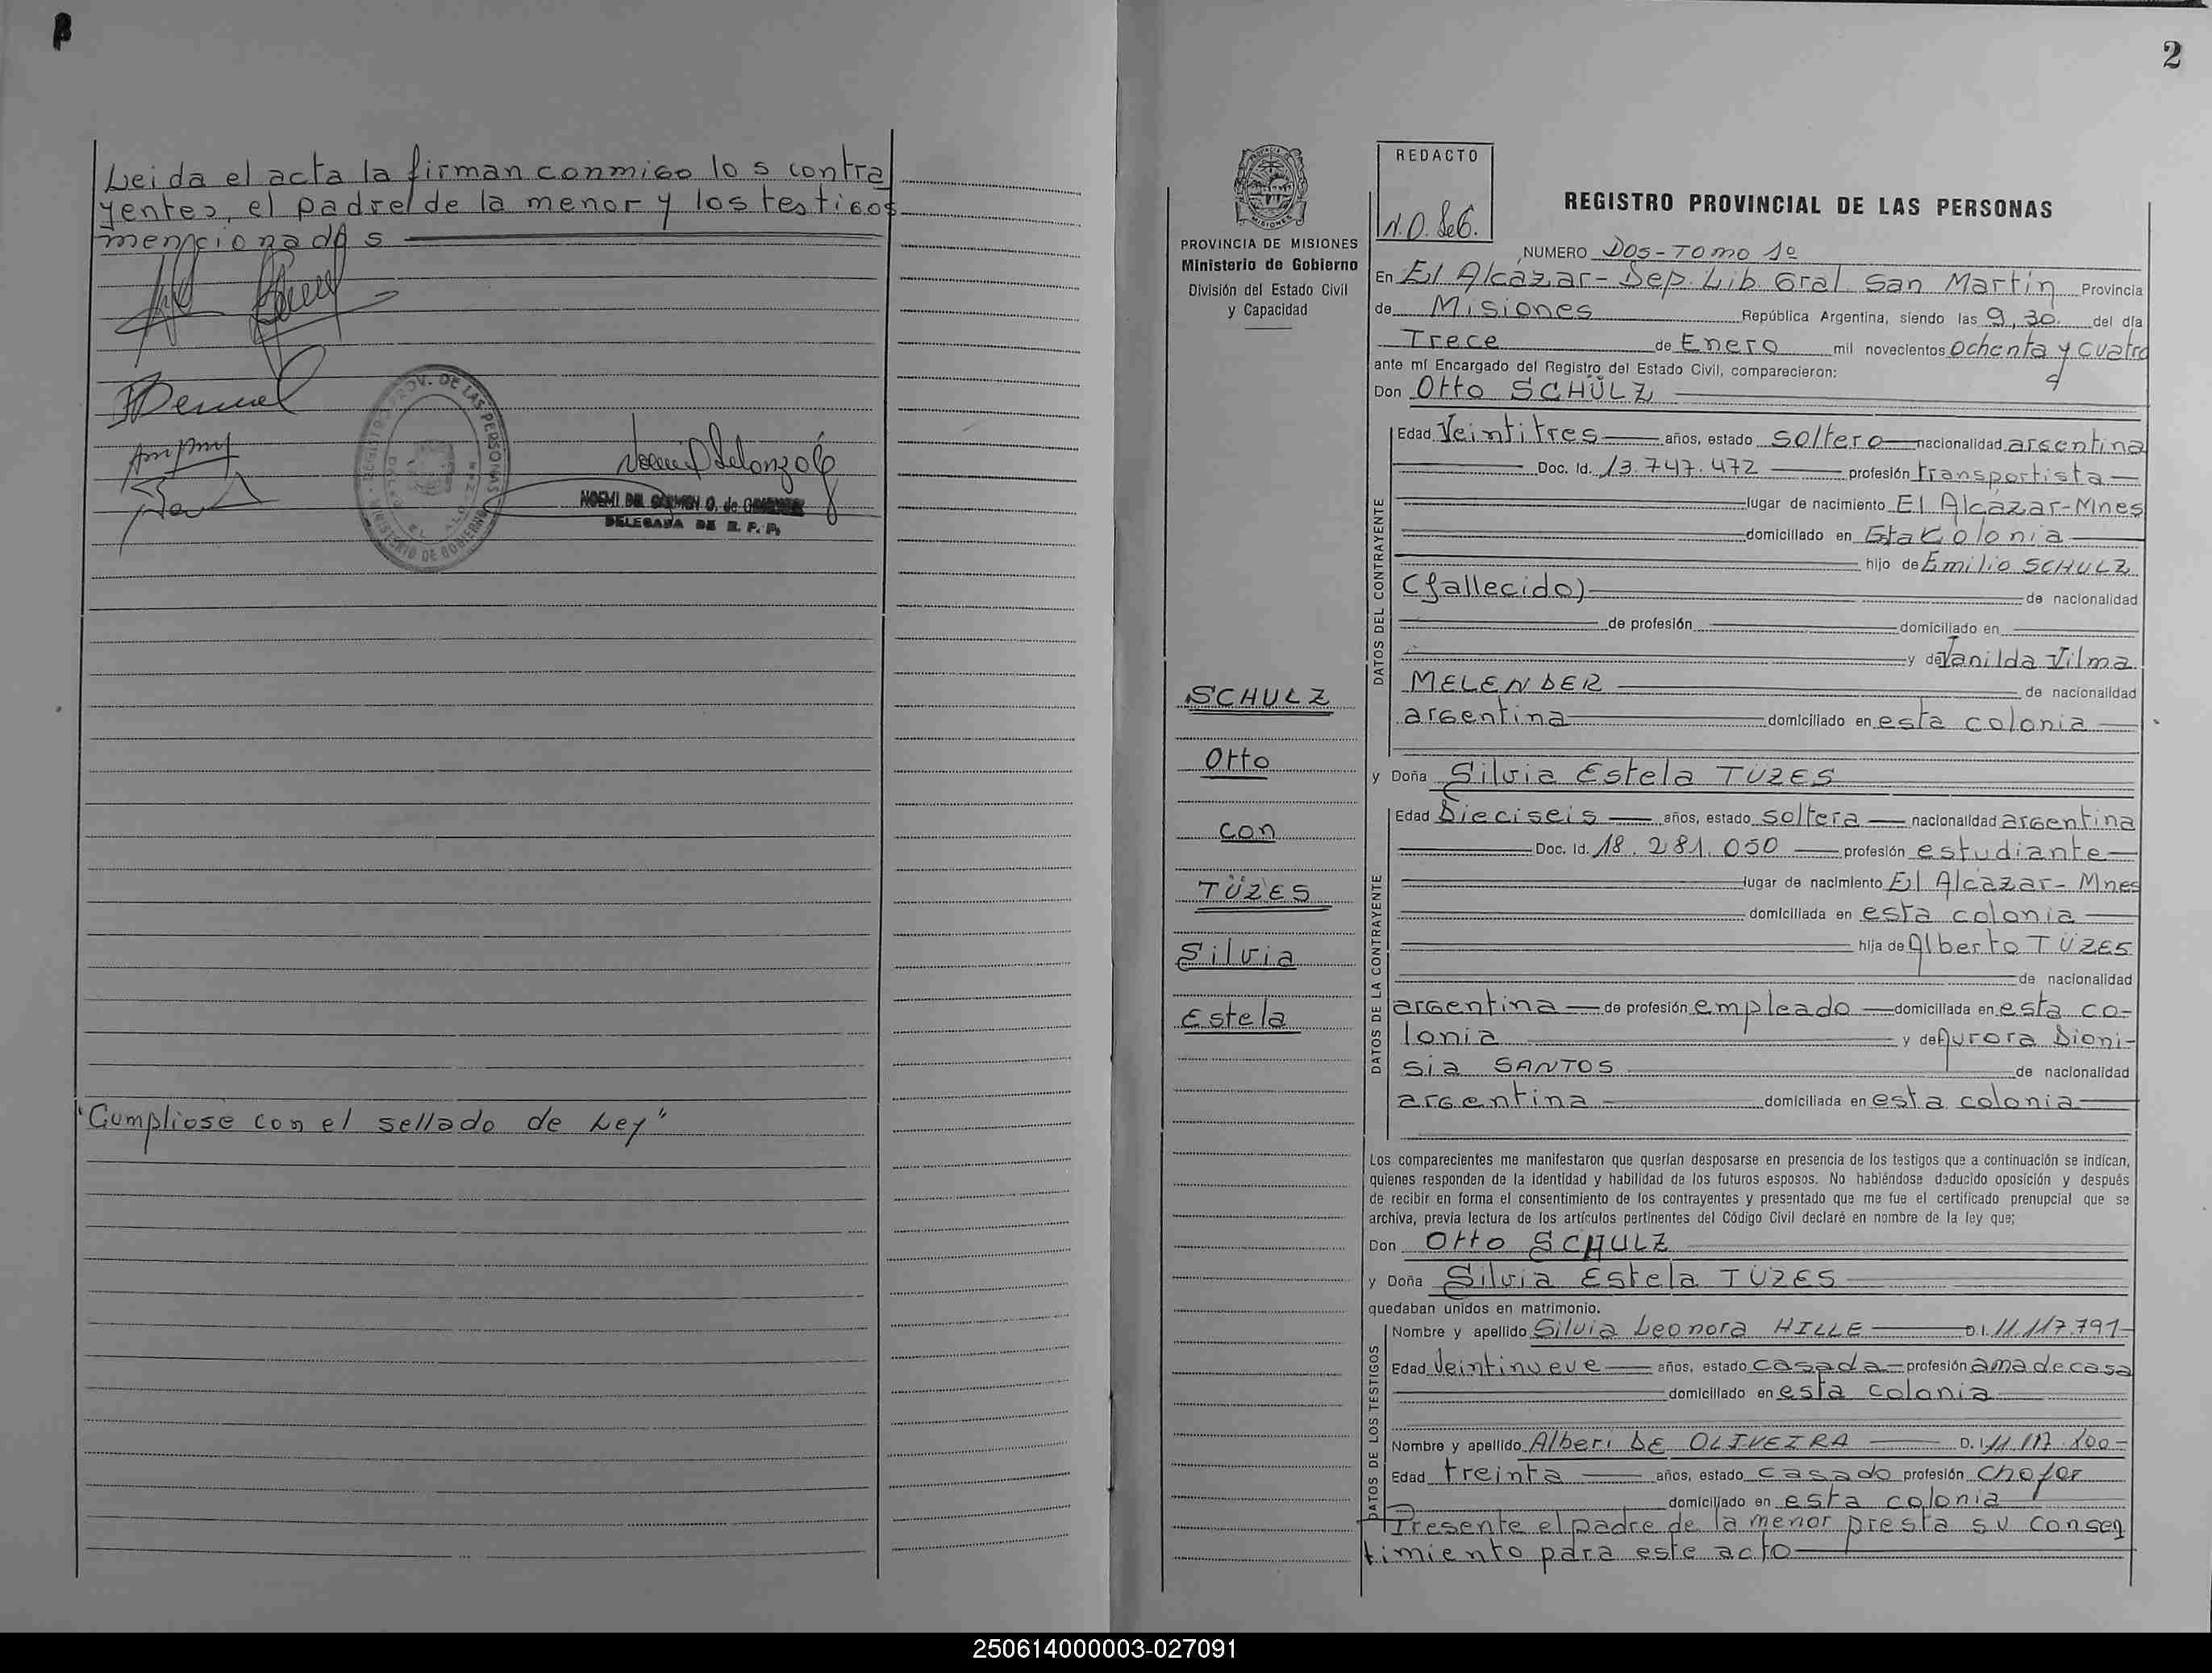 Leida el acta la firman conmigo los contra
yentes, el padre de la menor y los testigos
mencionados
REGISTRO PROV. DE LAS PERSONAS
MINISTERIO DE GOBIERNO
NOEMI DEL CARMEN O. de
DELEGADA DE R. P. P.
"Cumpliose con el sellado de Ley"
2
PROVINCIA DE MISIONES
Ministerio de Gobierno
División del Estado Civil
y Capacidad
SCHULZ
Otto
con
TÜZES
Silvia
Estela
REDACTO
REGISTRO PROVINCIAL DE LAS PERSONAS
NUMERO DOS-TOMO 1º
En El Alcázar-Dep. Lib. Gral. San Martín Provincia
de Misiones República Argentina, siendo las 9,30 del día
Trece de Enero mil novecientos ochenta y cuatro
ante mí Encargado del Registro del Estado Civil, comparecieron:
Don Otto SCHÜLZ
DATOS DEL CONTRAYENTE
Edad Veintitres años, estado soltero nacionalidad argentina
Doc. Id. 13.747.472 profesión transportista
lugar de nacimiento El Alcázar-Mnes
domiciliado en Esta Colonia
hijo de Emilio SCHULZ
(fallecido) de nacionalidad
de profesión domiciliado en
y de Vanilda Vilma
MELENDER de nacionalidad
argentina domiciliado en esta colonia
y Doña Silvia Estela TÜZES
DATOS DE LA CONTRAYENTE
Edad Dieciseis años, estado soltera nacionalidad argentina
Doc. Id. 18.281.050 profesión estudiante
lugar de nacimiento El Alcázar-Mnes
domiciliada en esta colonia
hija de Alberto TÜZES
de nacionalidad
argentina de profesión empleado domiciliada en esta co-
lonia y de Aurora Dioni-
sia SANTOS de nacionalidad
argentina domiciliada en esta colonia
Los comparecientes me manifestaron que querían desposarse en presencia de los testigos que a continuación se indican,
quienes responden de la identidad y habilidad de los futuros esposos. No habiéndose deducido oposición y después
de recibir en forma el consentimiento de los contrayentes y presentado que me fue el certificado prenupcial que se
archiva, previa lectura de los artículos pertinentes del Código Civil declaré en nombre de la ley que;
Don Otto SCHULZ
y Doña Silvia Estela TÜZES
quedaban unidos en matrimonio.
DATOS DE LOS TESTIGOS
Nombre y apellido Silvia Leonora HILLE D.I. 11.117.791
Edad Veintinueve años, estado casada profesión ama de casa
domiciliado en esta colonia
Nombre y apellido Alberi DE OLIVEIRA D.I. 11.117.800
Edad treinta años, estado casado profesión chofer
domiciliado en esta colonia
Presente el padre de la menor presta su consen
timiento para este acto
250614000003-027091